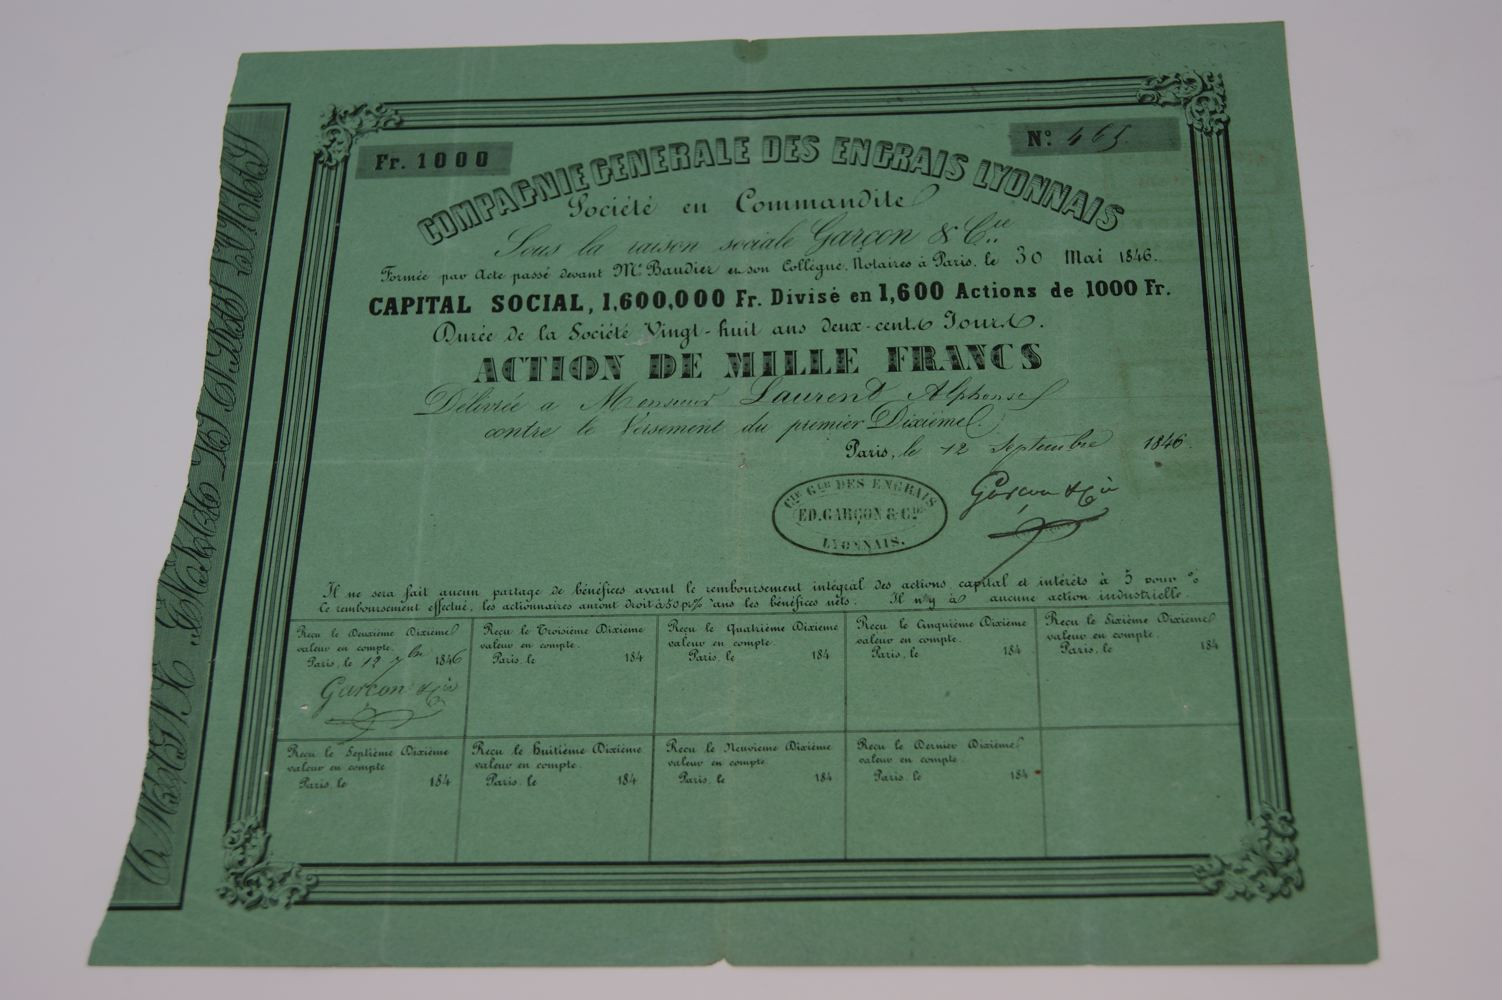 Fr. 1000
Nº 465.
COMPAGNIE GENERALE DES ENGRAIS LYONNAIS
Société en Commandite
Sous la raison sociale Garçon & Cie.
Formée par Acte passé devant Me Baudier et son Collègue, Notaires à Paris, le 30 Mai 1846.
CAPITAL SOCIAL, 1,600,000 Fr. Divisé en 1,600 Actions de 1000 Fr.
Durée de la Société Vingt-huit ans deux-cents Jours.
ACTION DE MILLE FRANCS
Délivrée a Monsieur Laurent Alphonse
contre le Versement du premier Dixième.
Paris, le 12 Septembre 1846.
Cie Gle DES ENGRAIS
ED. GARÇON & Cie
LYONNAIS.
Garçon & Cie
Il ne sera fait aucun partage de bénéfices avant le remboursement intégral des actions, capital et intérêts à 5 pour %
Ce remboursement effectué, les actionnaires auront droit à 50 pr % dans les bénéfices nets. Il n'y a aucune action industrielle.
Reçu le Deuxième Dixième
valeur en compte.
Paris, le 12 7bre 1846
Garçon & Cie
Reçu le Troisième Dixième
valeur en compte.
Paris, le 184
Reçu le Quatrième Dixième
valeur en compte.
Paris, le 184
Reçu le Cinquième Dixième
valeur en compte.
Paris, le 184
Reçu le Sixième Dixième
valeur en compte.
Paris, le 184
Reçu le Septième Dixième
valeur en compte
Paris, le 184
Reçu le huitième Dixième
valeur en compte.
Paris, le 184
Reçu le Neuvième Dixième
valeur en compte
Paris, le 184
Reçu le Dernier Dixième
valeur en compte.
Paris, le 184